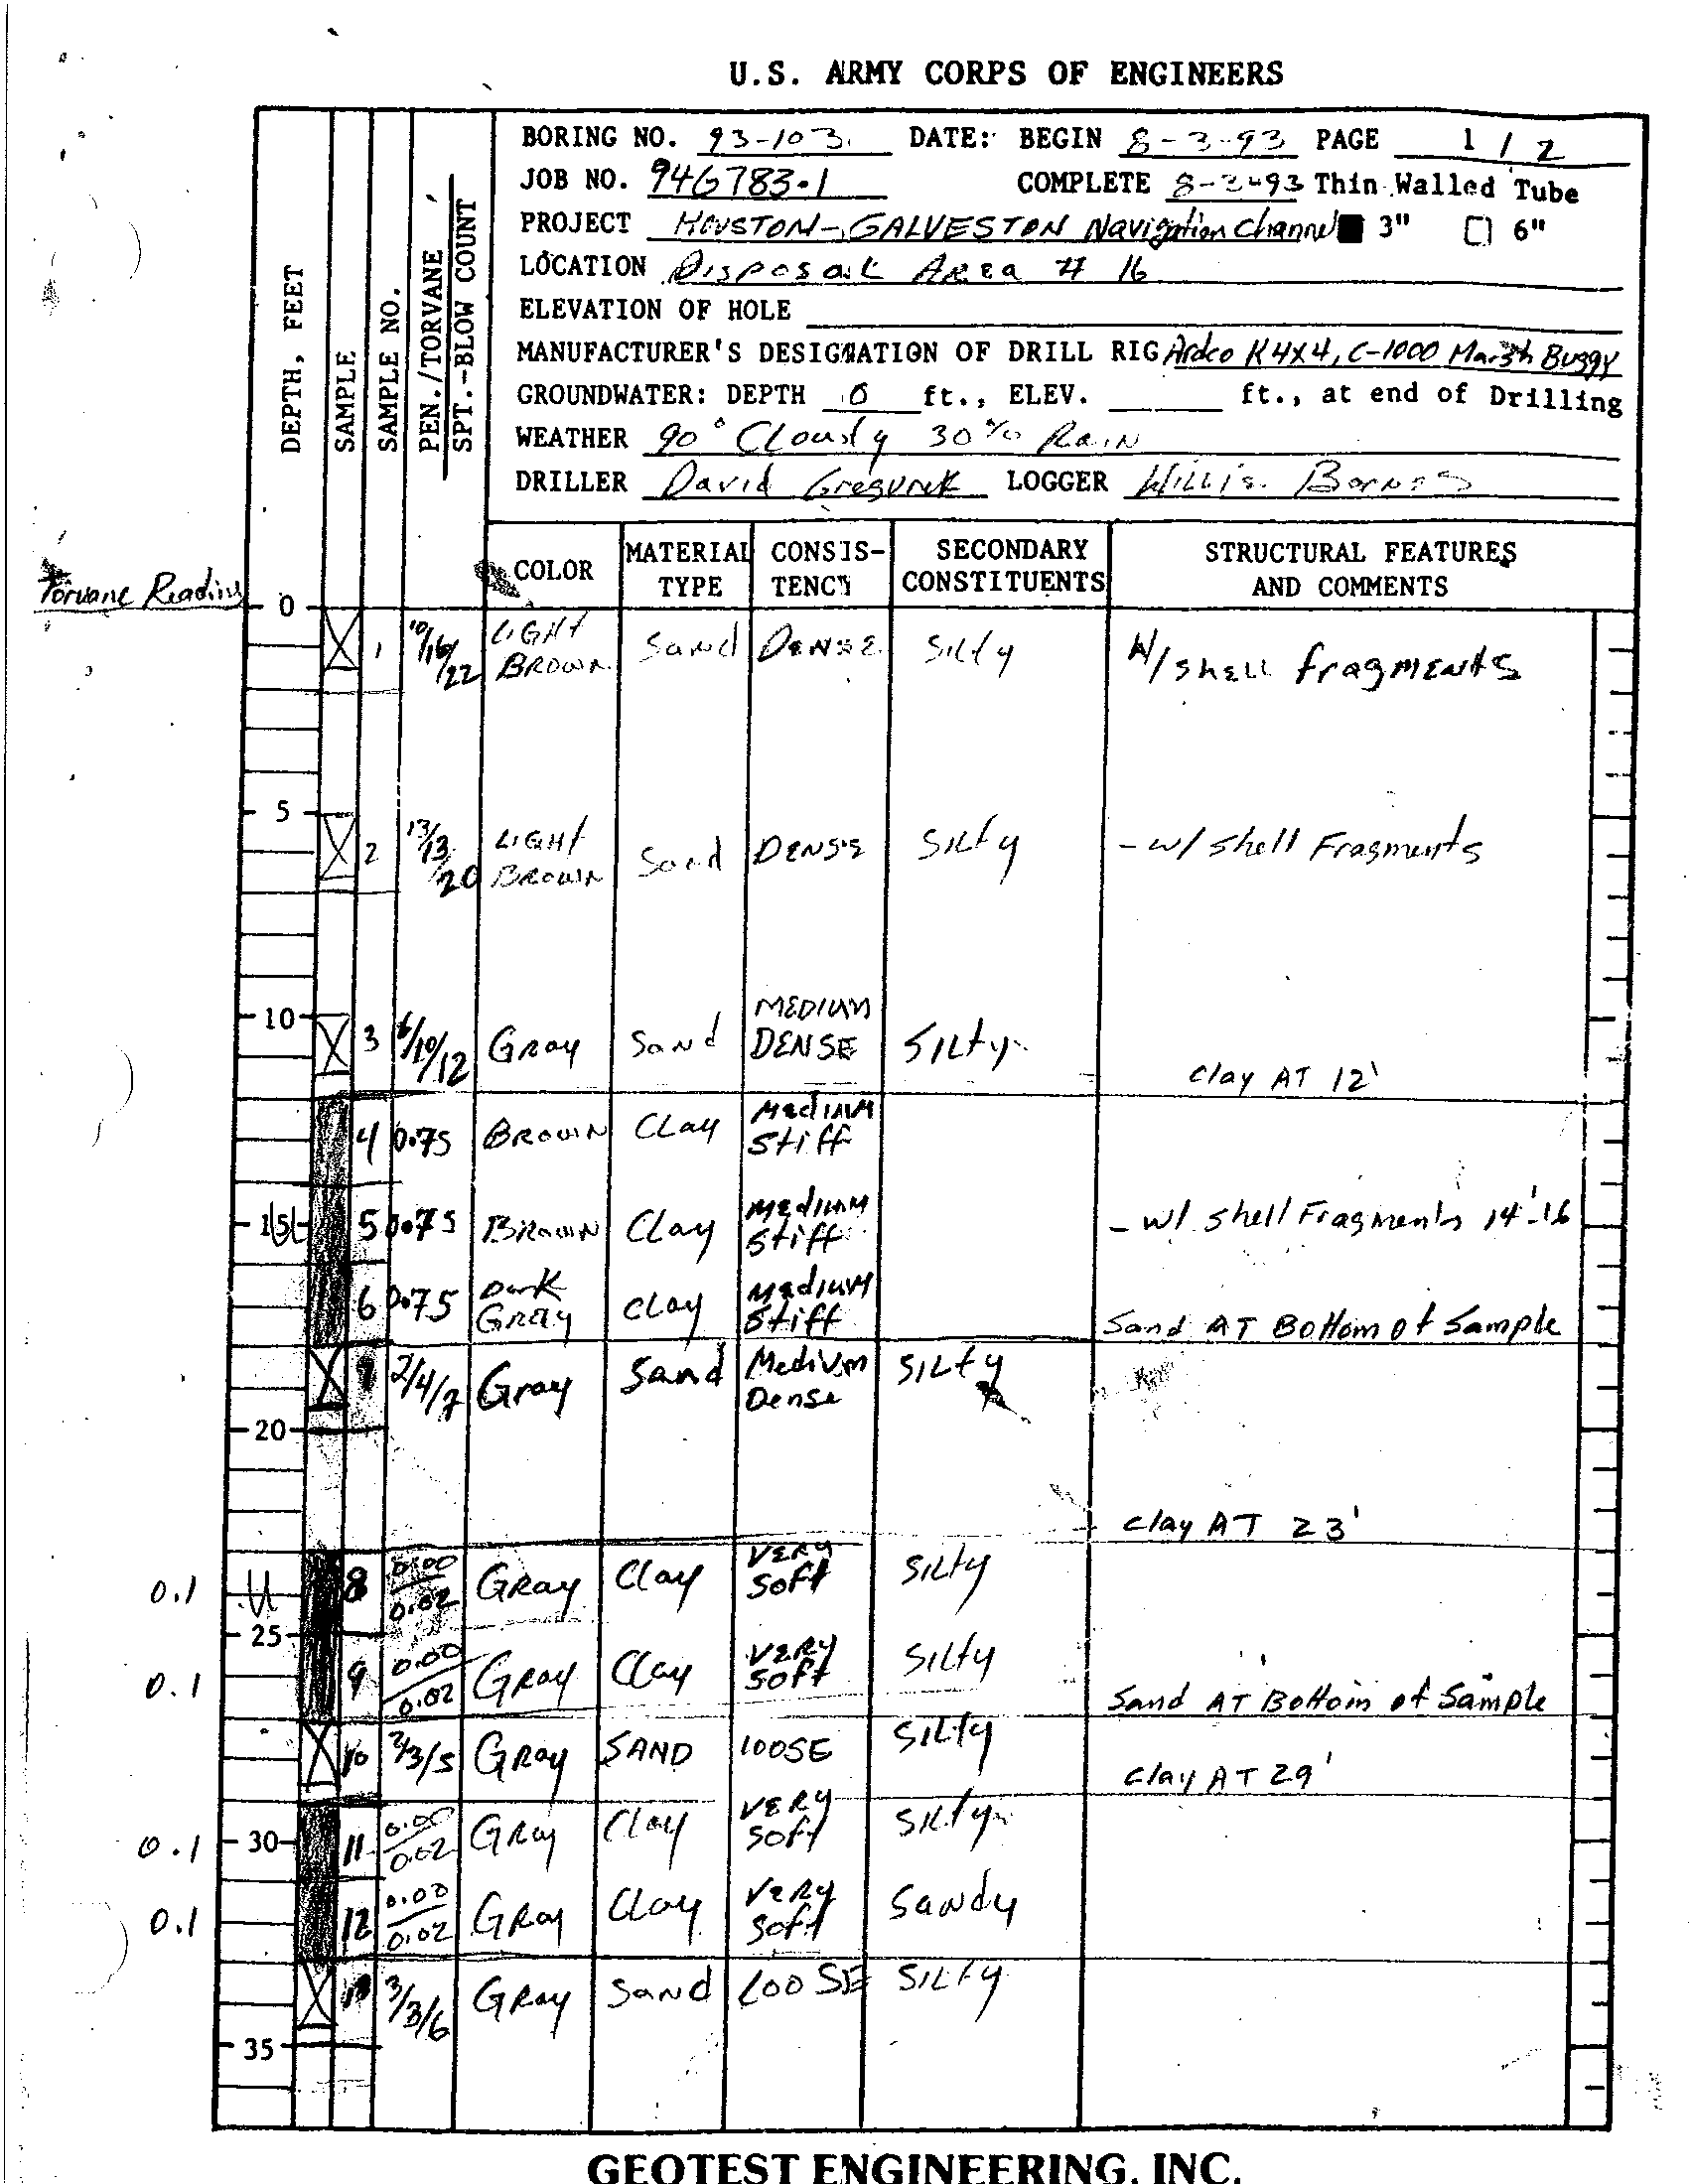 U.S. ARMY CORPS OF ENGINEERS
BORING NO. 93-103 DATE: BEGIN 8-3-93 PAGE 1 / 2
JOB NO. 946783.1 COMPLETE 8-3-93 Thin Walled Tube
PROJECT HOUSTON-GALVESTON Navigation Channel ■ 3" ☐ 6"
LOCATION Disposal Area # 16
ELEVATION OF HOLE
MANUFACTURER'S DESIGNATION OF DRILL RIG Ardco K4X4, C-1000 Marsh Buggy
GROUNDWATER: DEPTH 0 ft., ELEV. ft., at end of Drilling
WEATHER 90° Cloudy 30% RaiN
DRILLER David Gregurek LOGGER Willis Barnes
DEPTH, FEET
SAMPLE
SAMPLE NO.
PEN./TORVANE
SPT.-BLOW COUNT
COLOR MATERIAL TYPE CONSISTENCY SECONDARY CONSTITUENTS STRUCTURAL FEATURES AND COMMENTS
Torvane Reading
0
1 10/16/22 LIGHT BROWN Sand DENSE Silty W/shell fragments
5
2 13/13/20 LIGHT BROWN Sand DENSE Silty - w/ shell Fragments
10
3 6/10/12 Gray Sand MEDIUM DENSE Silty
Clay AT 12'
4 0.75 BROWN Clay Medium Stiff
15
5 0.75 BROWN Clay Medium Stiff - w/ shell Fragments 14'-16
6 0.75 Dark Gray Clay Medium Stiff Sand AT Bottom of Sample
7 2/4/7 Gray Sand Medium Dense Silty
20
Clay AT 23'
0.1 U 8 0.00/0.02 Gray Clay VERY Soft Silty
25
0.1 9 0.00/0.02 Gray Clay VERY Soft Silty Sand AT Bottom of Sample
10 2/3/5 Gray SAND LOOSE Silty
Clay AT 29'
0.1 30 11 0.00/0.02 Gray Clay VERY Soft Silty
0.1 12 0.00/0.02 Gray Clay VERY Soft Sandy
13 3/3/6 Gray Sand LOOSE Silty
35
GEOTEST ENGINEERING, INC.